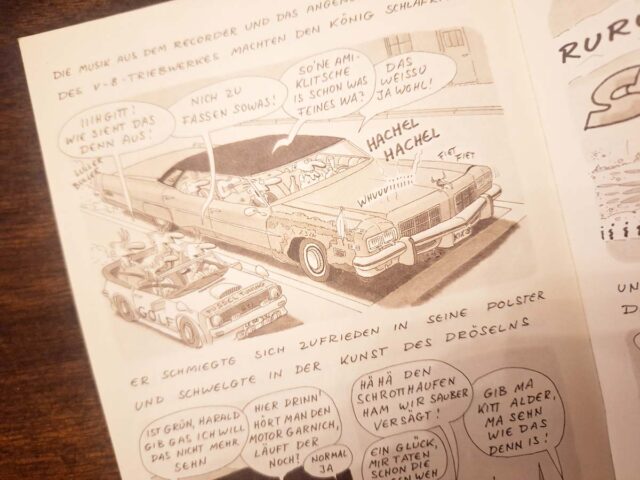 DIE MUSIK AUS DEM RECORDER UND DAS ANGENE
DES V-8-TRIEBWERKES MACHTEN DEN KÖNIG SCHLÄFRI
IIIHGITT!
WIE SIEHT DAS
DENN AUS!
NICH ZU
FASSEN SOWAS!
SO'NE AMI-
KLITSCHE
IS SCHON WAS
FEINES WA?
DAS
WEISSU
JA WOHL!
HACHEL
HACHEL
FIET
FIET
GOLF
ER SCHMIEGTE SICH ZUFRIEDEN IN SEINE POLSTER
UND SCHWELGTE IN DER KUNST DES DRÖSELNS
IST GRÜN, HARALD
GIB GAS ICH WILL
DAS NICHT MEHR
SEHN
HIER DRINN
HÖRT MAN DEN
MOTOR GARNICH,
LÄUFT DER
NOCH!
NORMAL
JA
HÄ HÄ DEN
SCHROTTHAUFEN
HAM WIR SAUBER
VERSÄGT!
EIN GLÜCK,
MIR TATEN
SCHON DIE
WEH
GIB MA
KITT ALDER,
MA SEHN
WIE DAS
DENN IS!
RUR
UN
D